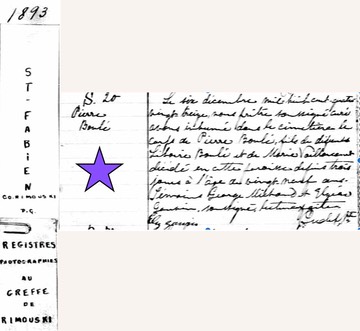 1893
ST-FABIEN
CO. RIMOUSKI
P.Q.
REGISTRES
PHOTOGRAPHIES
AU
GREFFE
DE
RIMOUSKI
S. 20
Pierre
Boulé
Le six décembre mil huit cent quatre
vingt treize, nous prêtre soussigné curé
avons inhumé dans le cimetière le
corps de Pierre Boulé, fils de défunt
Boulé et de Marie
décédé en cette paroisse depuis trois
jours à l'âge de vingt neuf ans.
Témoins George Michaud et Elzéar
soussignés, lecture faite